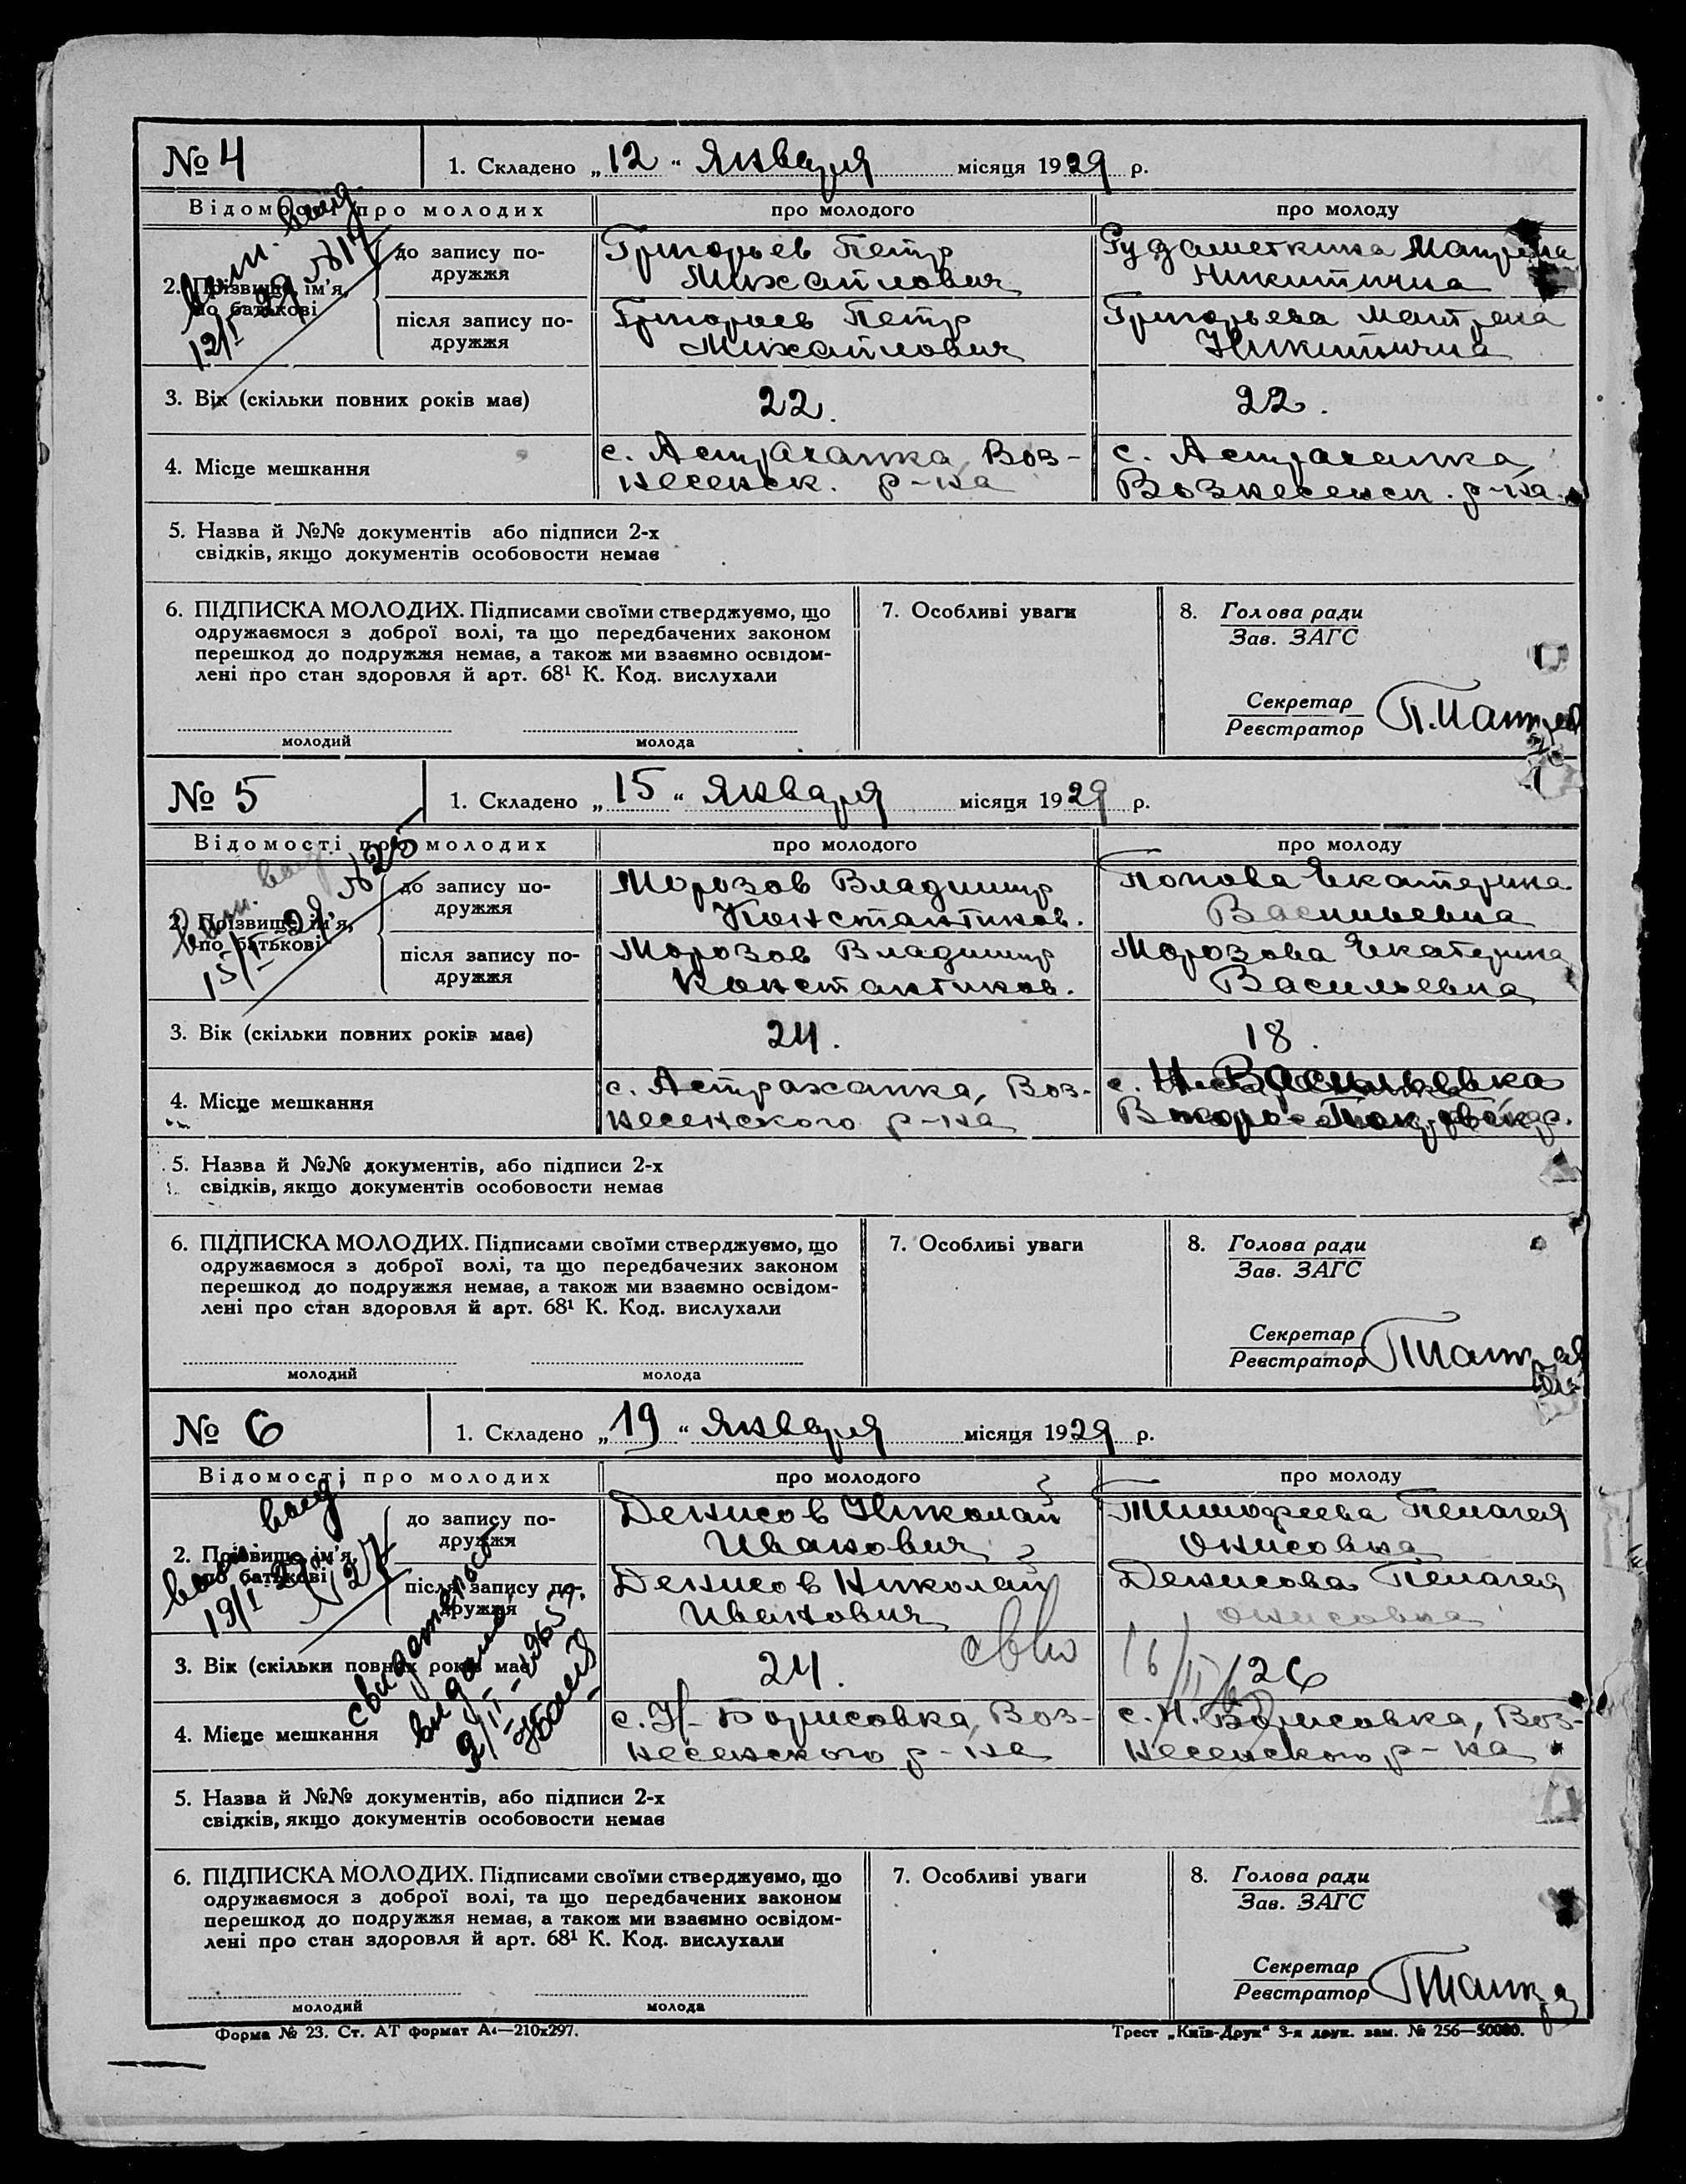 № 4
1. Складено „12“ Января місяця 1929 р.
Відомості про молодих
про молодого
про молоду
2. Прізвище, ім'я,
по батькові
12/I 29 №17
до запису по-
дружжя
Григорьев Петр
Михайлович
Рудаметкина Матрена
Никитична
після запису по-
дружжя
Григорьев Петр
Михайлович
Григорьева Матрена
Никитична
3. Вік (скільки повних років має)
22.
22.
4. Місце мешкання
с. Астраханка, Воз-
несенск. р-на
с. Астраханка,
Вознесенск. р-на.
5. Назва й №№ документів або підписи 2-х
свідків, якщо документів особовости немає
6. ПІДПИСКА МОЛОДИХ. Підписами своїми стверджуємо, що
одружаємося з доброї волі, та що передбачених законом
перешкод до подружжя немає, а також ми взаємно освідом-
лені про стан здоровля й арт. 68¹ К. Код. вислухали
молодий
молода
7. Особливі уваги
8. Голова ради
Зав. ЗАГС
Секретар
Реєстратор
№ 5
1. Складено „15“ Января місяця 1929 р.
Відомості про молодих
про молодого
про молоду
2. Прізвище, ім'я,
по батькові
15/I 29 №25
до запису по-
дружжя
Морозов Владимир
Константинов.
Попова Екатерина
Васильевна
після запису по-
дружжя
Морозов Владимир
Константинов.
Морозова Екатерина
Васильевна
3. Вік (скільки повних років має)
24.
18.
4. Місце мешкання
с. Астраханка, Воз-
несенского р-на
с. Н. Васильевка
5. Назва й №№ документів, або підписи 2-х
свідків, якщо документів особовости немає
6. ПІДПИСКА МОЛОДИХ. Підписами своїми стверджуємо, що
одружаємося з доброї волі, та що передбачених законом
перешкод до подружжя немає, а також ми взаємно освідом-
лені про стан здоровля й арт. 68¹ К. Код. вислухали
молодий
молода
7. Особливі уваги
8. Голова ради
Зав. ЗАГС
Секретар
Реєстратор
№ 6
1. Складено „19“ Января місяця 1929 р.
Відомості про молодих
про молодого
про молоду
2. Прізвище, ім'я,
по батькові
19/I 29 №27
до запису по-
дружжя
Денисов Николай
Иванович
Тимофеева Пелагея
Онисовна
після запису по-
дружжя
Денисов Николай
Иванович
Денисова Пелагея
Онисовна
3. Вік (скільки повних років має)
24.
26
4. Місце мешкання
с. Н-Борисовка, Воз-
несенского р-на
с. Н. Борисовка, Воз-
несенского р-на
5. Назва й №№ документів, або підписи 2-х
свідків, якщо документів особовости немає
6. ПІДПИСКА МОЛОДИХ. Підписами своїми стверджуємо, що
одружаємося з доброї волі, та що передбачених законом
перешкод до подружжя немає, а також ми взаємно освідом-
лені про стан здоровля й арт. 68¹ К. Код. вислухали
молодий
молода
7. Особливі уваги
8. Голова ради
Зав. ЗАГС
Секретар
Реєстратор
Форма № 23. Ст. АТ формат А₄—210х297.
Трест „Київ-Друк“ 3-я друк. зам. № 256—50000.